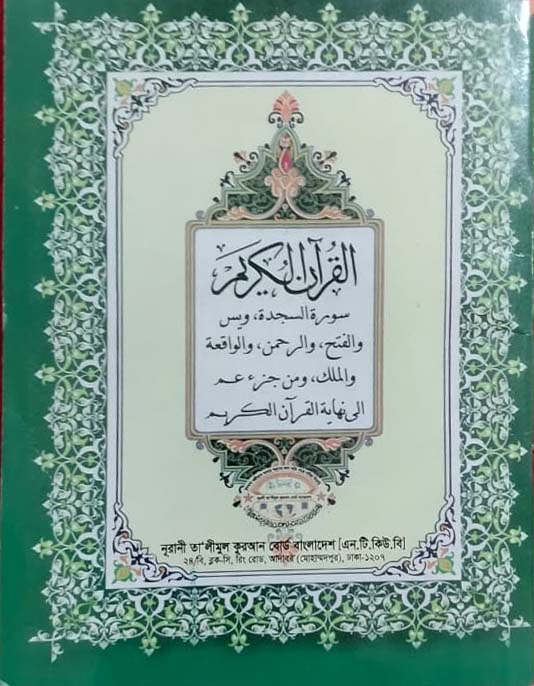 القرآن الكريم
سورة السجدة، ويس
والفتح، والرحمن، والواقعة
والملك، ومن جزء عم
الى نهاية القرآن الكريم
নূরানী তা'লীমুল কুরআন বোর্ড বাংলাদেশ [এন.টি.কিউ.বি]
২৪/বি, ব্লক-সি, রিং রোড, আদাবর (মোহাম্মদপুর), ঢাকা-১২০৭